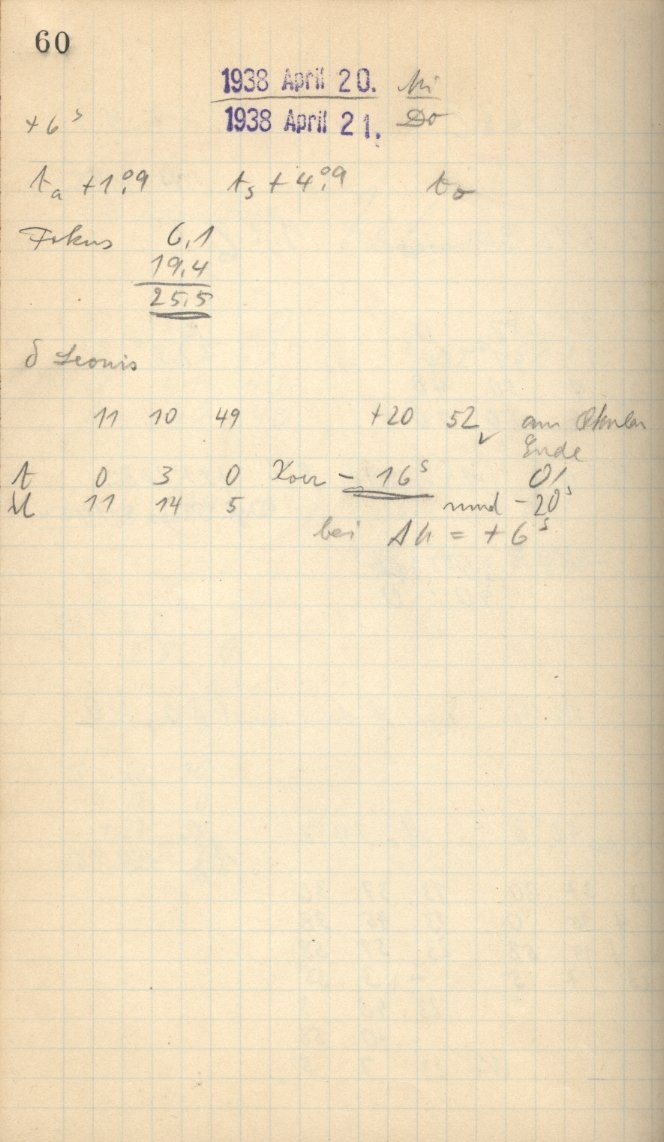 60
1938 April 20. Mi
1938 April 21. Do
+6ˢ
tₐ +1°,9 tₛ +4°,9 t₀
Fokus 6,1
19,4
25,5
δ Leonis
11 10 49 +20 52, am Okular
Ende
t 0 3 0 Korr - 16ˢ 0,
U 11 14 5 rund -20ˢ
bei ΔU = +6ˢ